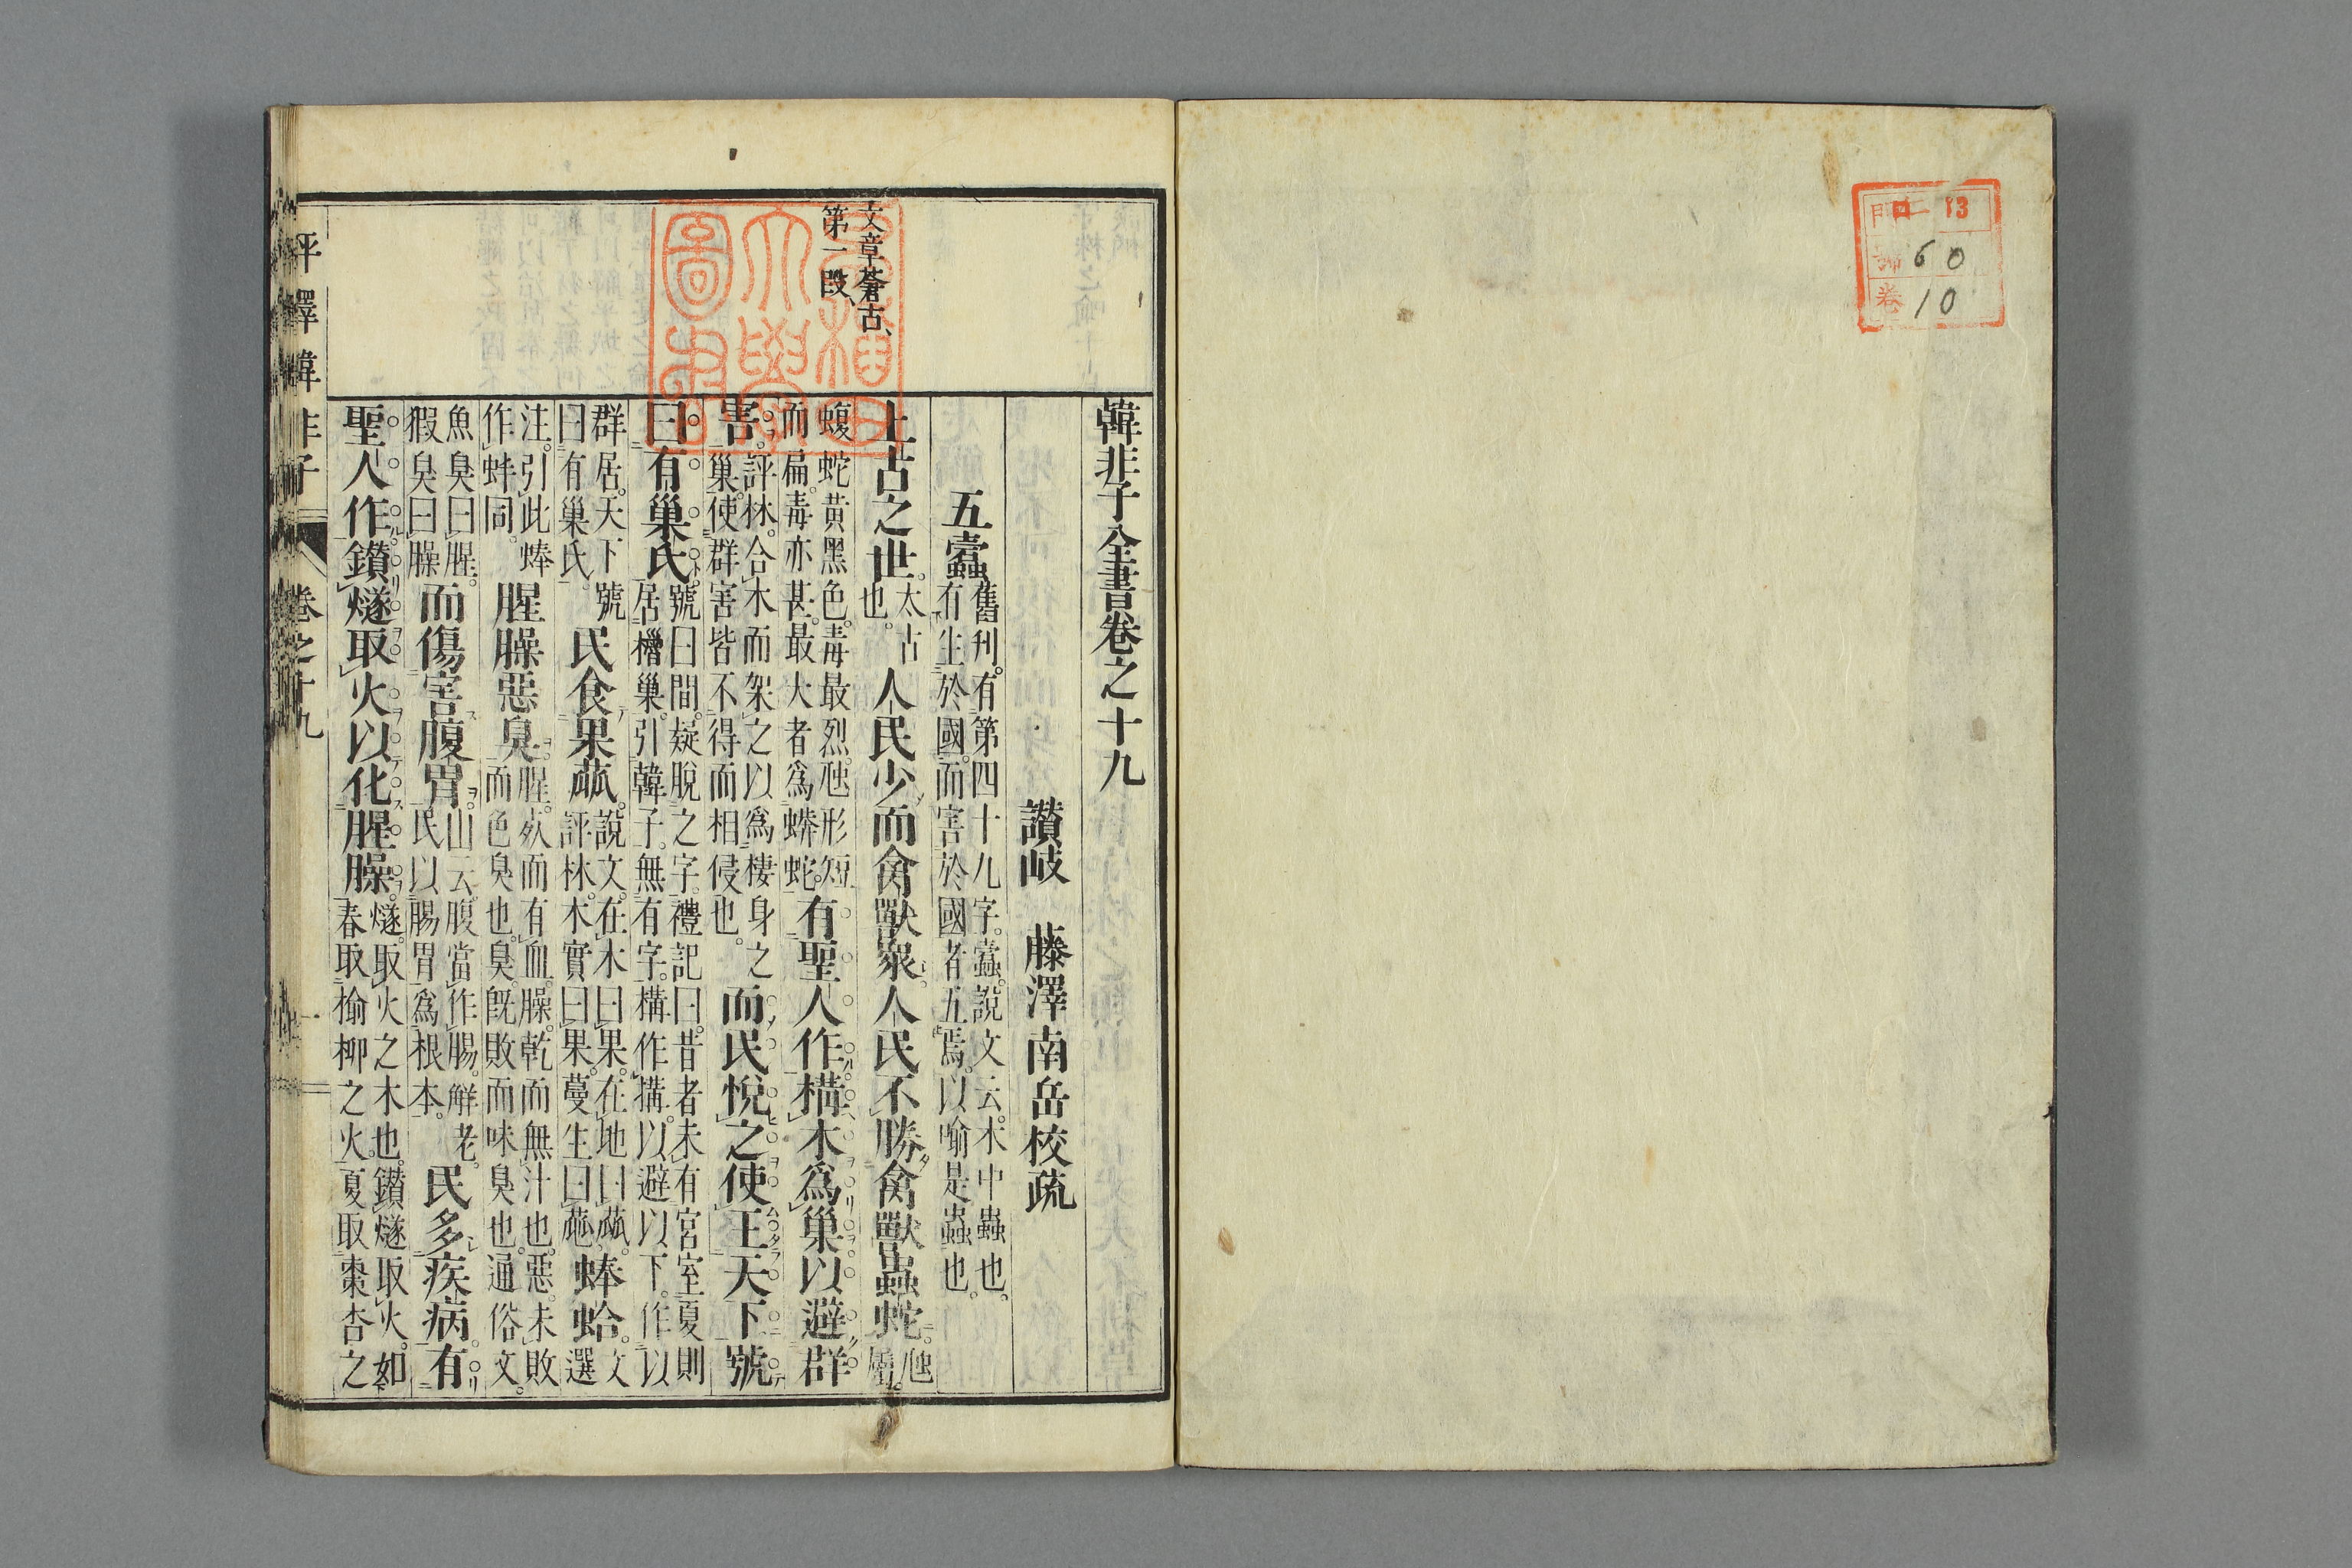 門 ロ 13
號 60
卷 10
韓非子全書卷之十九
讃岐 藤澤南岳校疏
五蠹 舊刋。有第四十九字。蠹。說文云。木中蟲也。
有生於國。而害於國者五焉。以喻是蟲也。
上古之世。太古也。人民少而禽獸衆。人民不勝禽獸蟲蛇。虺屬。
蝮蛇黃黑色。毒最烈。虺形短
而扁。毒亦甚。最大者爲蟒蛇。有聖人作。構木爲巢以避群
害。評林。合木而架之以爲棲身之
巢。使群害皆不得而相侵也。而民悅之使王天下。號
曰。有巢氏。號曰間。疑脫之字。禮記曰。昔者未有宮室夏則
居橧巢。引韓子。無有字。構作搆。以避以下。作以
群居。天下號
曰有巢氏。民食果蓏。說文。在木曰果。在地曰蓏。
評林。木實曰果。蔓生曰蓏。蜯蛤。文選
注。引此蜯
作蚌同。腥臊惡臭。腥。肰而有血。臊。乾而無汁也。惡。未敗
而色臭也。臭。旣敗而味臭也。通俗文。
魚臭曰腥。
猳臭曰臊。而傷害腹胃。山云。腹當作腸。解老。
民以腸胃爲根本。民多疾病。有
聖人作。鑽燧取火以化腥臊。燧。取火之木也。鑽燧取火。如
春取楡柳之火。夏取棗杏之
文章蒼古、
第一段、
評釋韓非子 卷之十九 一